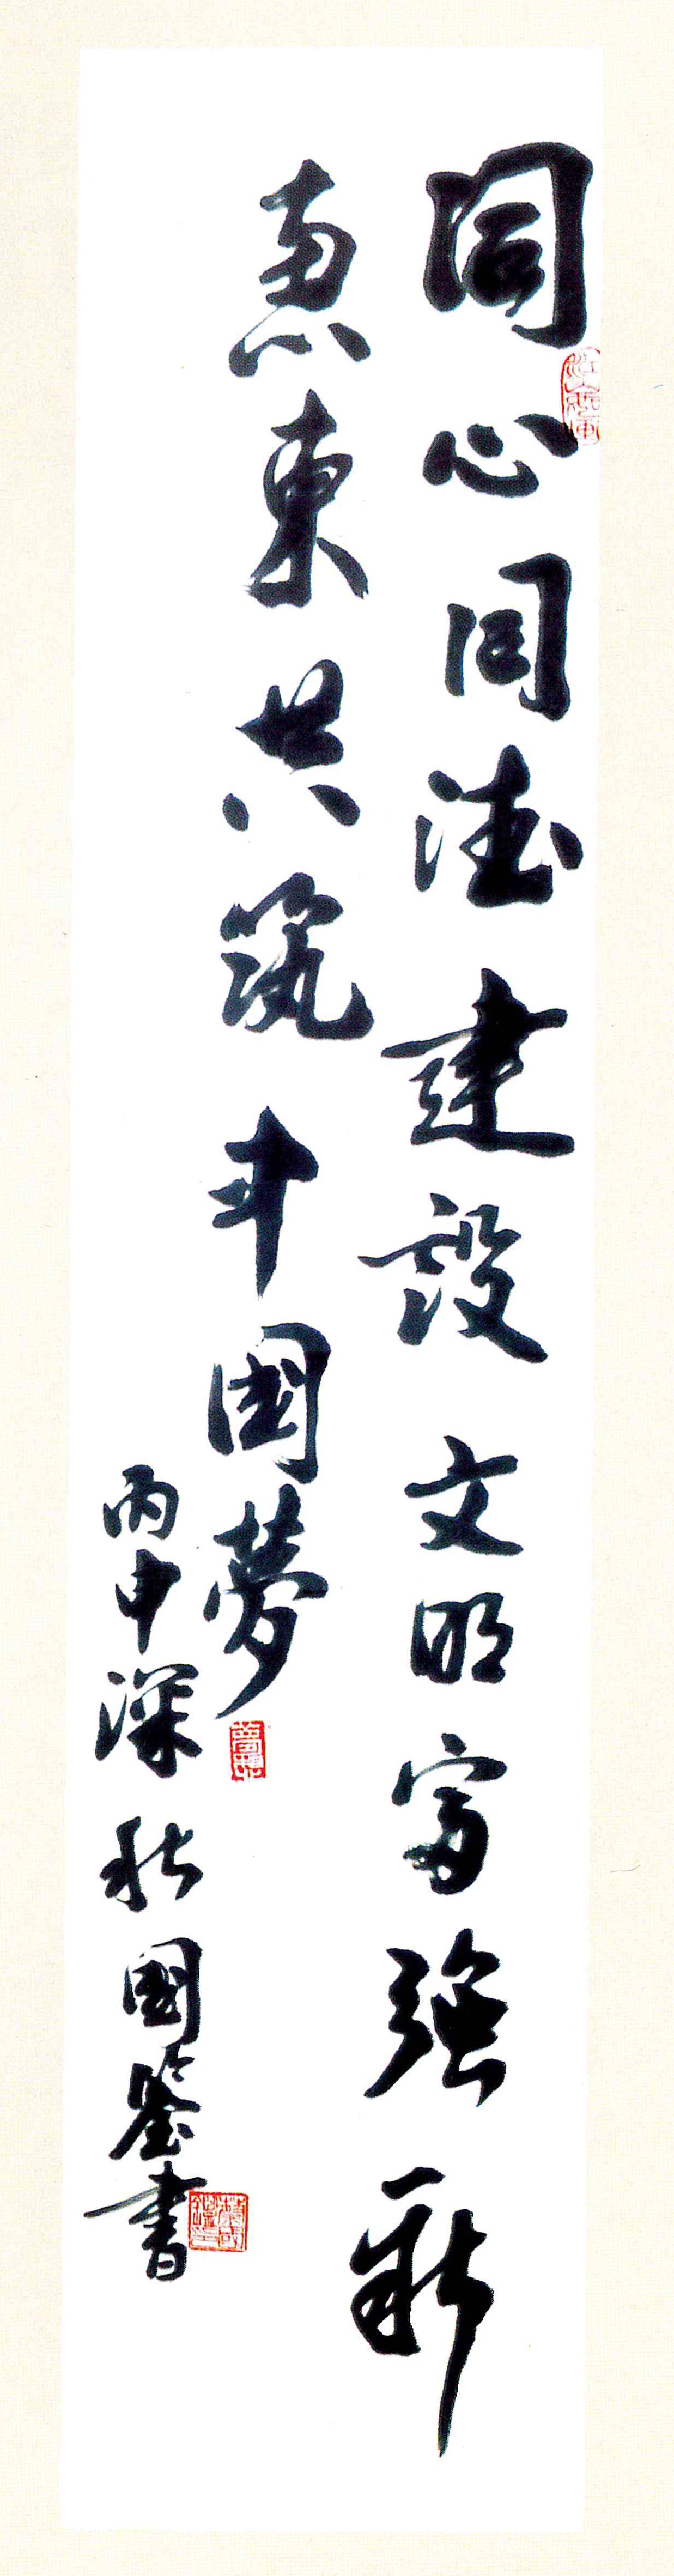 同心同德建設文明富強新
惠東共筑中國夢
丙申深秋國鑒書